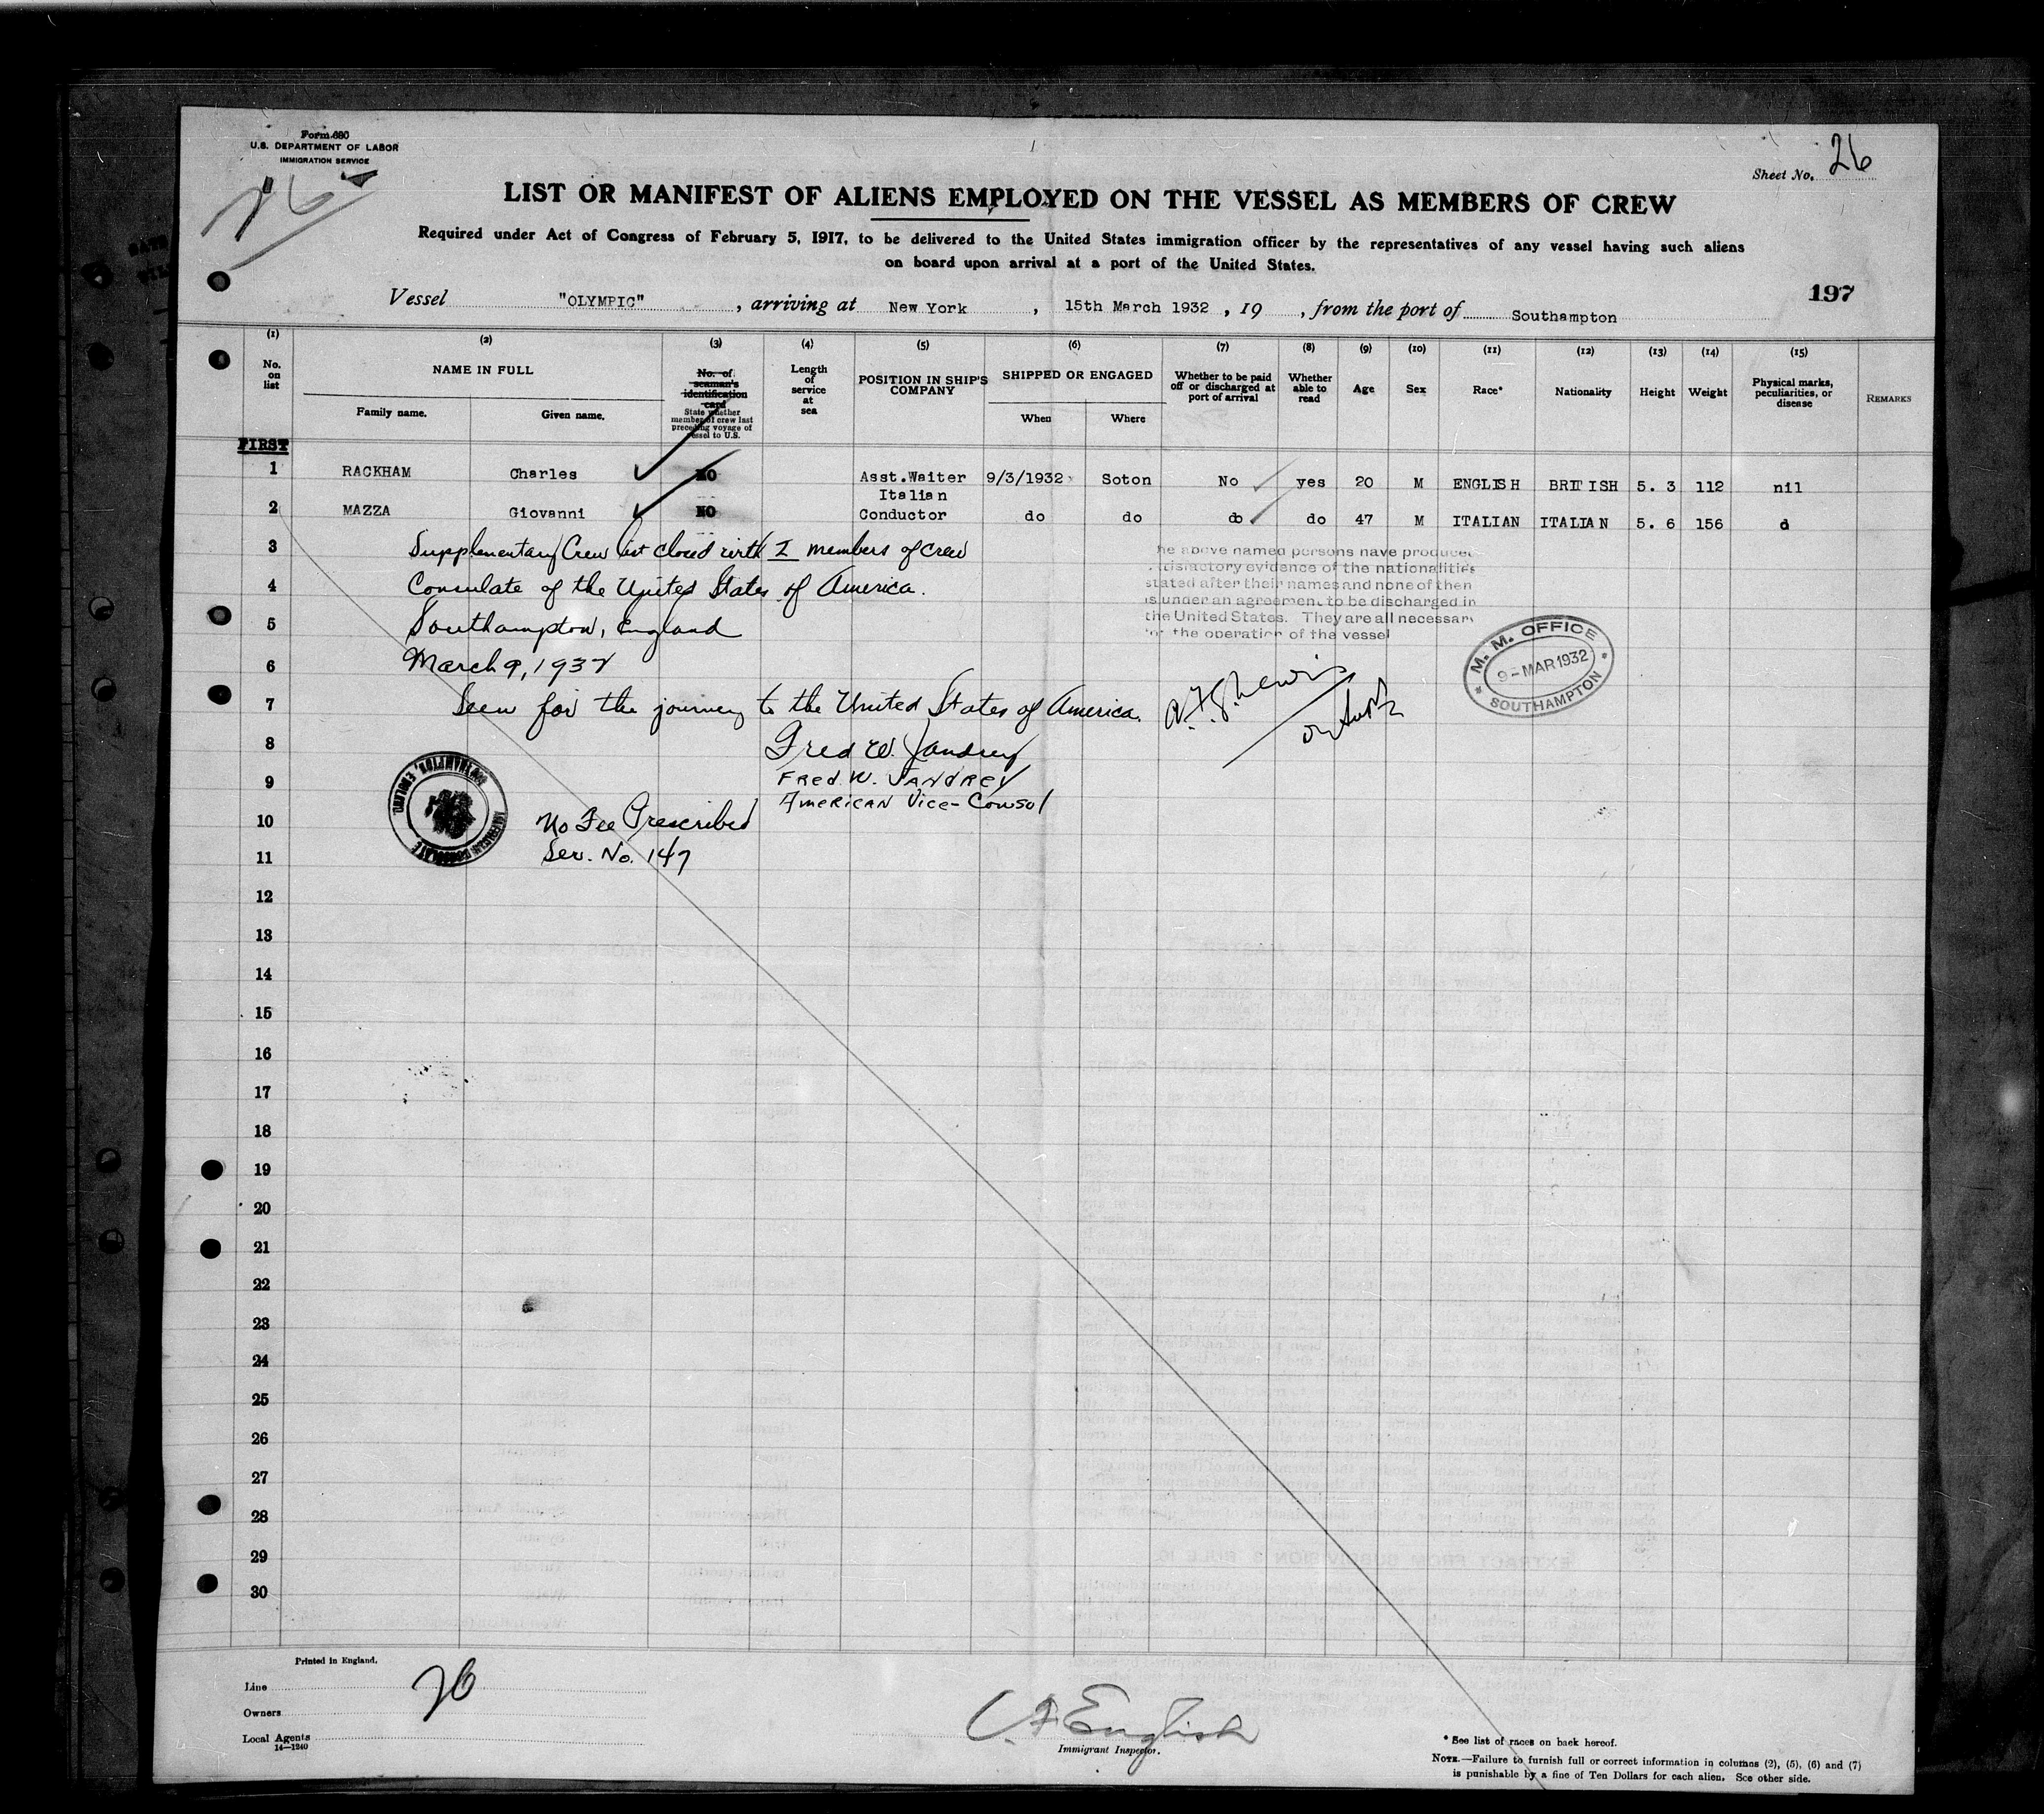 Form 680
U.S. DEPARTMENT OF LABOR
IMMIGRATION SERVICE
26
Sheet No. 26
LIST OR MANIFEST OF ALIENS EMPLOYED ON THE VESSEL AS MEMBERS OF CREW
Required under Act of Congress of February 5, 1917, to be delivered to the United States immigration officer by the representatives of any vessel having such aliens
on board upon arrival at a port of the United States.
197
Vessel "OLYMPIC", arriving at New York, 15th March 1932, 19 , from the port of Southampton
(1) (2) (3) (4) (5) (6) (7) (8) (9) (10) (11) (12) (13) (14) (15)
No. on list
NAME IN FULL
Family name. Given name.
No. of seaman's identification card
State whether member of crew last preceding voyage of vessel to U.S.
Length of service at sea
POSITION IN SHIP'S COMPANY
SHIPPED OR ENGAGED
When Where
Whether to be paid off or discharged at port of arrival
Whether able to read
Age
Sex
Race*
Nationality
Height
Weight
Physical marks, peculiarities, or disease
REMARKS
FIRST
1 RACKHAM Charles NO Asst.Waiter 9/3/1932 Soton No yes 20 M ENGLISH BRITISH 5. 3 112 nil
Italian
2 MAZZA Giovanni NO Conductor do do do do 47 M ITALIAN ITALIAN 5. 6 156 d
3 Supplementary Crew list closed with 2 members of crew
4 Consulate of the United States of America.
5 Southampton, England
6 March 9, 1932
7 Seen for the journey to the United States of America.
8 Fred W. Jandrey
9 FRED. W. JANDREY
AMERICAN Vice-Consul
10 No Fee Prescribed
11 Ser. No. 147
he above named persons have produced
tisfactory evidence of the nationalities
stated after their names and none of then
is under an agreement to be discharged in
the United States. They are all necessary
for the operation of the vessel
M. M. OFFICE
9-MAR 1932
SOUTHAMPTON
AMERICAN CONSULATE
SOUTHAMPTON, ENGLAND
12
13
14
15
16
17
18
19
20
21
22
23
24
25
26
27
28
29
30
Printed in England.
Line
26
Owners
Local Agents
14—1240
English
Immigrant Inspector.
* See list of races on back hereof.
NOTE.—Failure to furnish full or correct information in columns (2), (5), (6) and (7)
is punishable by a fine of Ten Dollars for each alien. See other side.